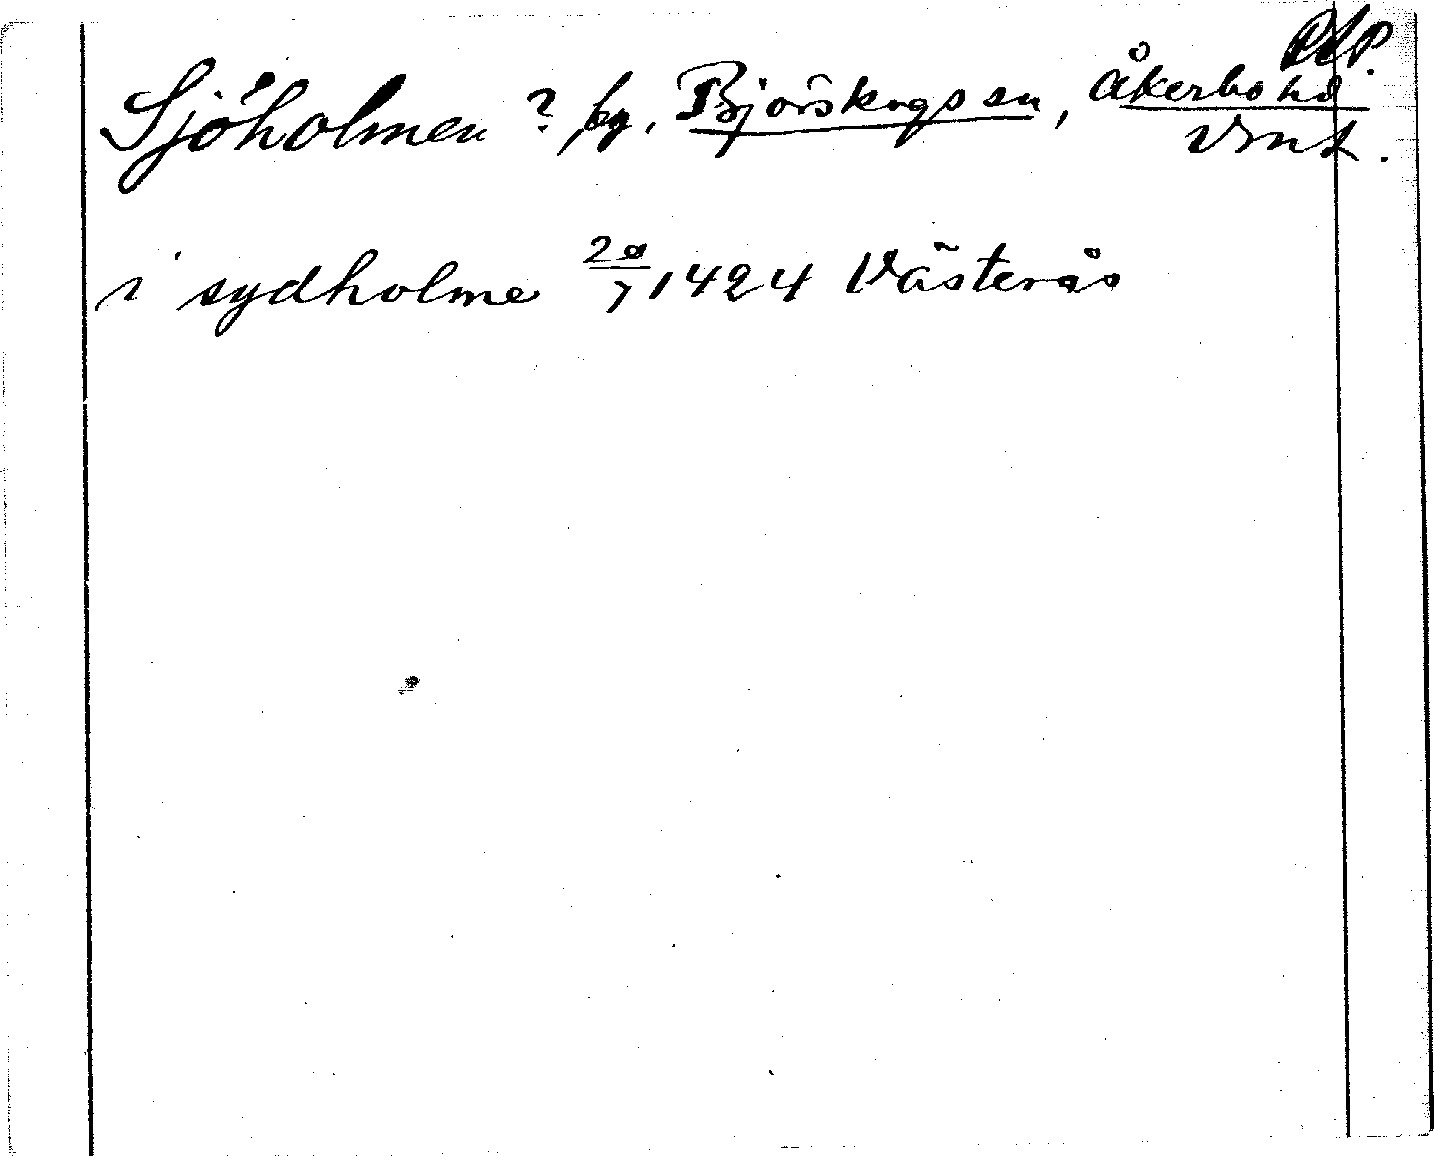 Sjöholmen ? by, Björskogs sn, Åkerbo hd
Vmt.
i sydholme 20/7 1424 Västerås